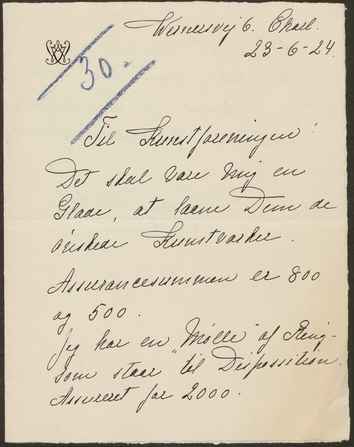 Wernersvej 6. Charl.
23-6-24.
30.-
Til Kunstforeningen!
Det skal være mig en
Glæde, at laane Dem de
ønskede Kunstværker.
Assurancesummen er 800
og 500.
Jeg har en "Mølle" af Ring-
som staar til Disposition.
Assureret for 2000.